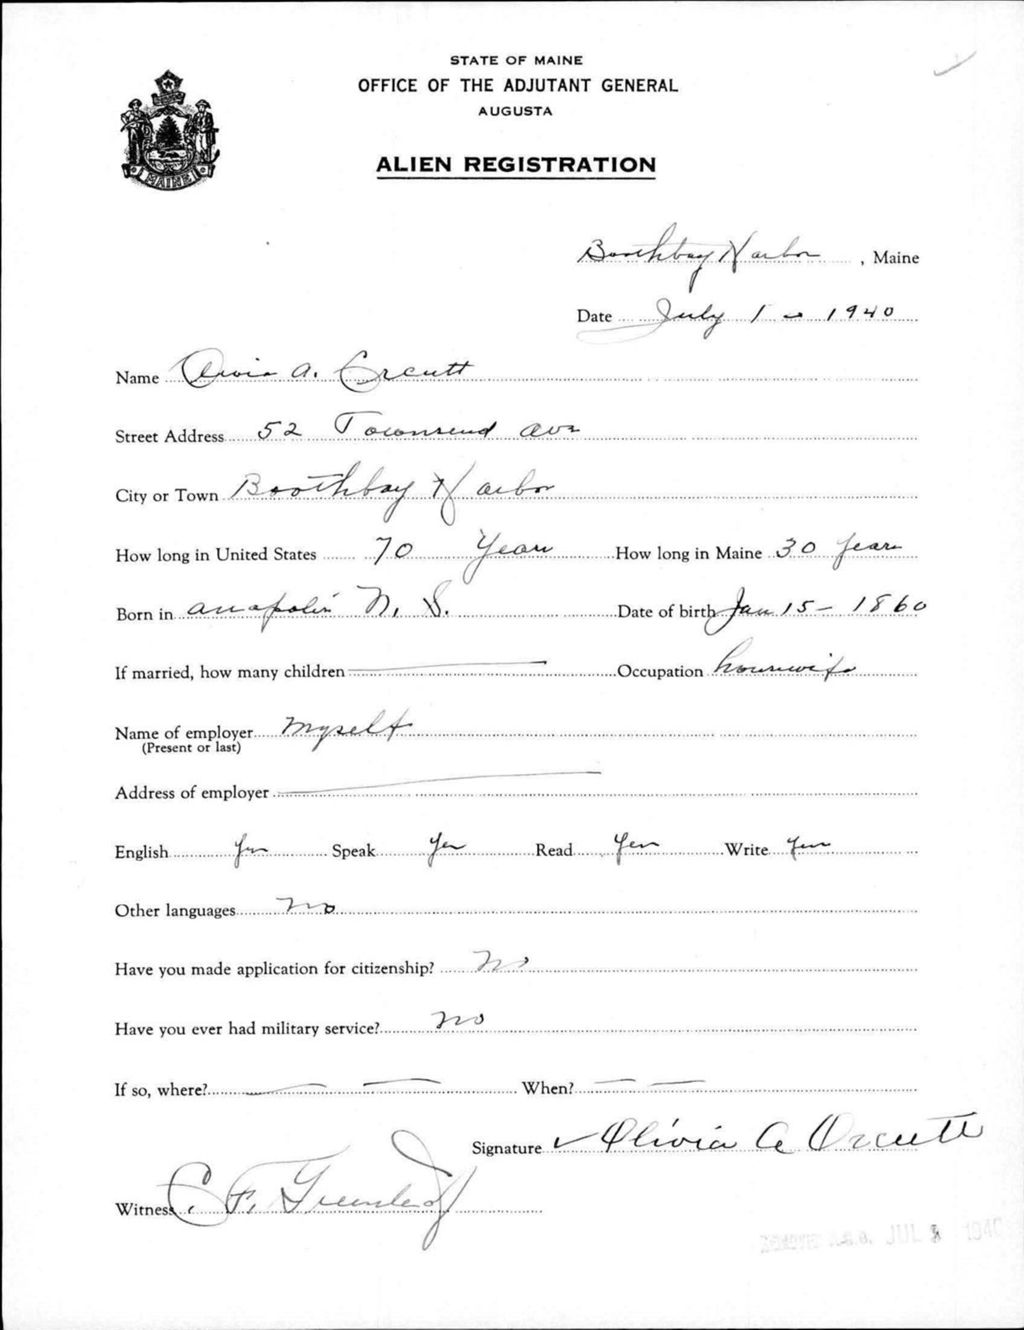 STATE OF MAINE
OFFICE OF THE ADJUTANT GENERAL
AUGUSTA
MAINE
ALIEN REGISTRATION
Boothbay Harbor, Maine
Date July 1 - 1940
Name Olivia A. Orcutt
Street Address 52 Townsend Ave
City or Town Boothbay Harbor
How long in United States 70 Years How long in Maine 30 years
Born in anapolis N. S. Date of birth Jan 15 - 1860
If married, how many children Occupation housewife
Name of employer myself
(Present or last)
Address of employer
English Yes Speak Yes Read Yes Write Yes
Other languages No
Have you made application for citizenship? No
Have you ever had military service? No
If so, where? — — When? — —
Signature Olivia A Orcutt
Witness C. F.
A.G.O. JUL 1940